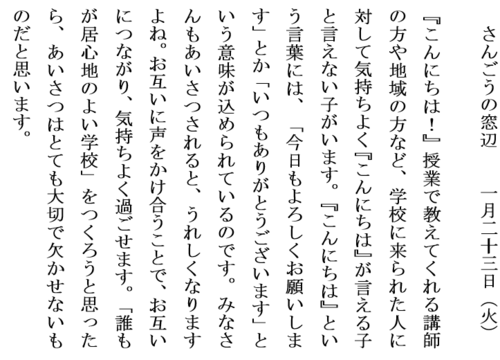 さんごうの窓辺　　一月二十三日（火）
『こんにちは！』授業で教えてくれる講師
の方や地域の方など、学校に来られた人に
対して気持ちよく『こんにちは』が言える子
と言えない子がいます。『こんにちは』とい
う言葉には、「今日もよろしくお願いしま
す」とか「いつもありがとうございます」と
いう意味が込められているのです。みなさ
んもあいさつされると、うれしくなります
よね。お互いに声をかけ合うことで、お互い
につながり、気持ちよく過ごせます。「誰も
が居心地のよい学校」をつくろうと思った
ら、あいさつはとても大切で欠かせないも
のだと思います。